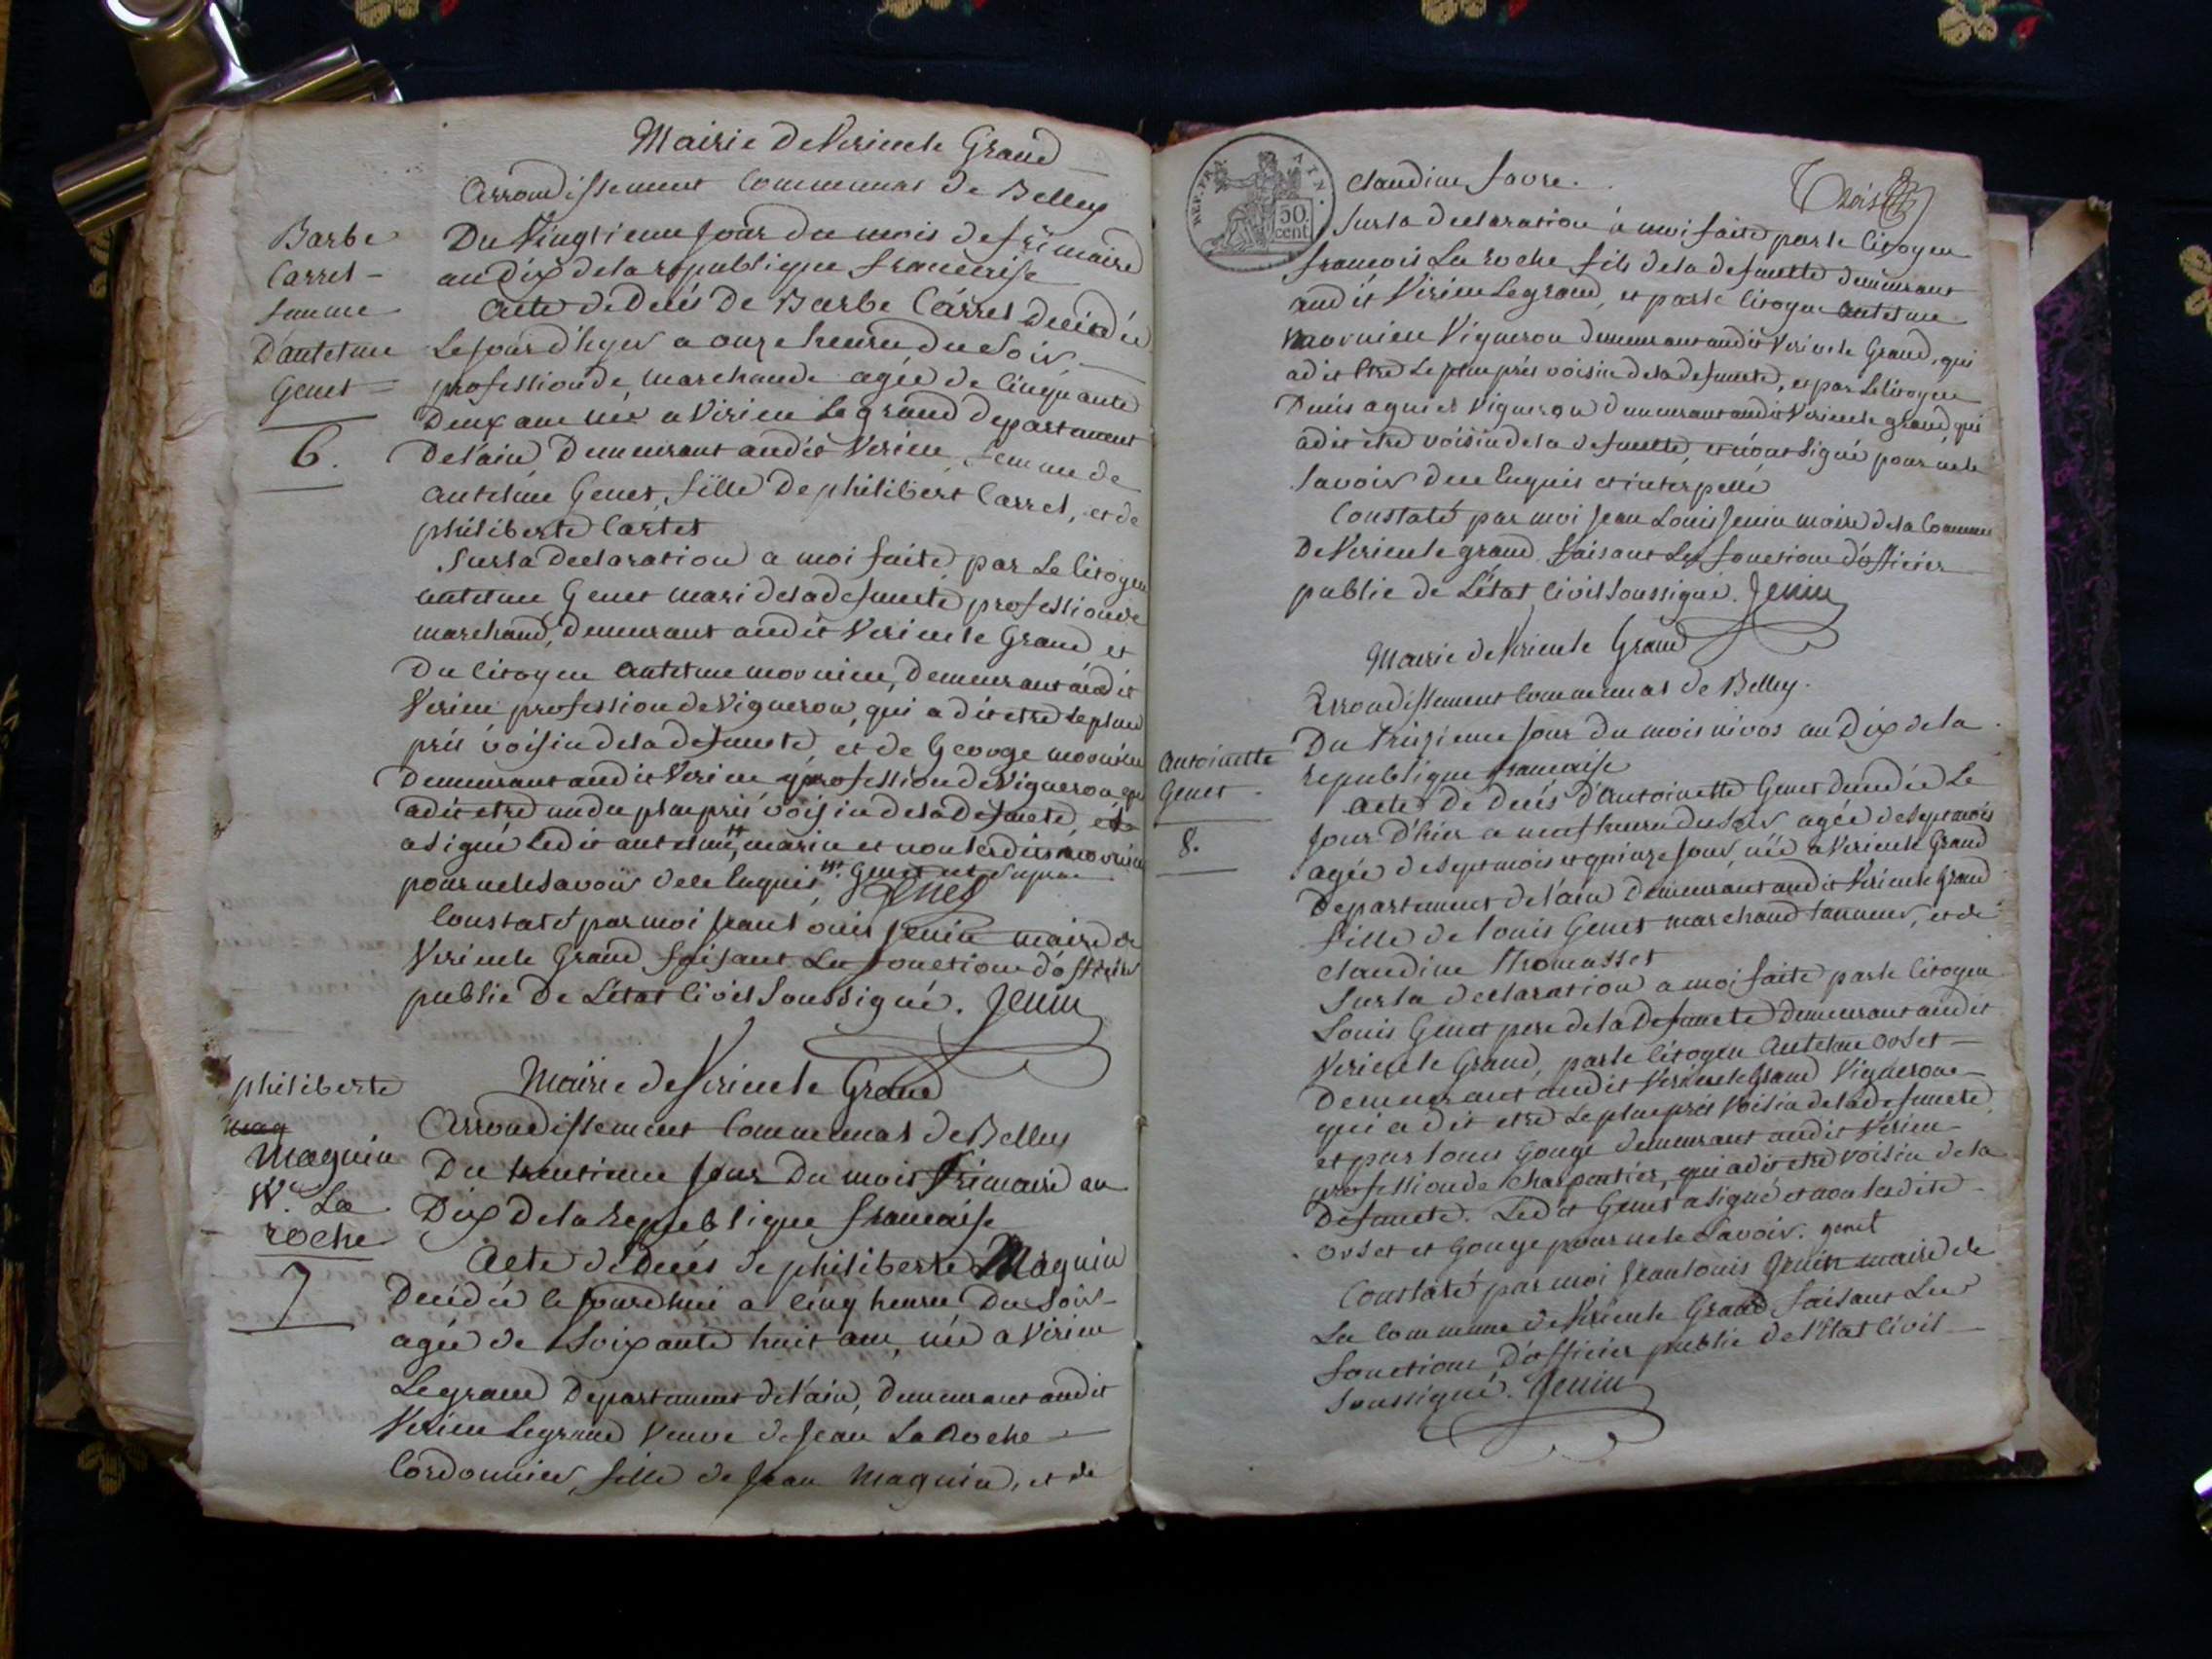 Mairie de Virieu le Grand
Arrondissement Communal de Belley
Barbe
Carrel
femme
D'antelme
Genet
6.
Du Vingtieme jour du mois de frimaire
an Dix de la republique francaise
Acte de Décés de Barbe Carrel Décédée
Le jour d'hyer a onze heures du Soir
profession de marchande agée de Cinquante
Deux ans née a Virieu Le grand departement
De l'ain, Demeurant audit Virieu, femme de
antelme Genet, fille De philibert Carrel, et de
philiberte Cartet
Sur la Declaration a moi faite par Le Citoyen
antelme Genet mari de la defuncte profession de
marchand, Demeurant audit Virieu le Grand et
Du Citoyen antelme mornieu, Demeurant audit
Virieu profession de Vigneron, qui a dit etre le plus
prés voisin de la defuncte, et de George mornieu
Demeurant audit Virieu profession de Vigneron qui
a dit etre un du plus prés voisin de la Defuncte, et
a signé Ledit antelme, mari et non lesdits mornieu
pour ne le Savoir de ce Enquis, Genet
Genet
Constaté par moi Jean Louis Jenin maire de
Virieu le Grand faisant Les fonctions d'officier
public De L'état Civil Soussigné. Jenin
philiberte
mag
Maguin
Vve. La
roche
7
Mairie de Virieu le Grand
Arrondissement Communal de Belley
Du trentieme jour Du mois frimaire an
Dix De la Republique francaise
Acte de Décés de philiberte Maguin
Decédée le jourdhui a cinq heures Du Soir
agée de Soixante huit ans, née a Virieu
Le grand Departement de l'ain, Demeurant audit
Virieu Le grand Veuve de Jean La Roche
Cordonnier, fille de Jean Maguin, et de
REP. FRA.
AIN.
50.
cent
Trois
Claudine favre.
Sur la declaration à moi faite par le Citoyen
francois La roche fils de la defuncte demeurant
audit Virieu Le grand, et par le Citoyen antelme
mornieu Vigneron demeurant audit Virieu le Grand, qui
a dit Etre Le plus prés voisin de la defuncte, et par Le Citoyen
Denis agniel Vigneron demeurant audit Virieu le grand, qui
a dit etre voisin de la defuncte, et n'ont Signé pour ne le
Savoir de ce Enquis et interpellé
Constaté par moi Jean Louis Jenin maire de la Commune
De Virieu le grand faisant Les fonctions d'officier
public de L'état Civil Soussigné. Jenin
Mairie de Virieu le Grand
Arrondissement Communal de Belley.
Antoinette
Genet
8.
Du treizieme jour du mois nivos an Dix de la
republique francaise
Acte de Decés d'Antoinette Genet Decedée Le
jour D'hier a neuf heures du Soir agée de Sept mois
agée de Sept mois et quinze jours, née a Virieu le Grand
Departement de l'ain Demeurant audit Virieu le Grand
fille de Louis Genet marchand tanneur, et de
Claudine Thomasset
Sur la declaration a moi faite par le Citoyen
Louis Genet pere de la Defuncte Demeurant audit
Virieu le Grand, par le Citoyen Antelme Orset
Demeurant audit Virieu le Grand Vigneron
qui a dit etre Le plus prés Voisin de la defuncte
et par Louis Gouge demeurant audit Virieu
profession de Charpentier, qui a dit etre voisin de la
Defuncte. Ledit Genet a signé et non lesdits
Orset et Gouge pour ne le Savoir. genet
Constaté par moi Jean Louis Jenin maire de
La Commune de Virieu le Grand faisant Les
fonctions D'officier public de l'Etat Civil
Soussigné. Jenin